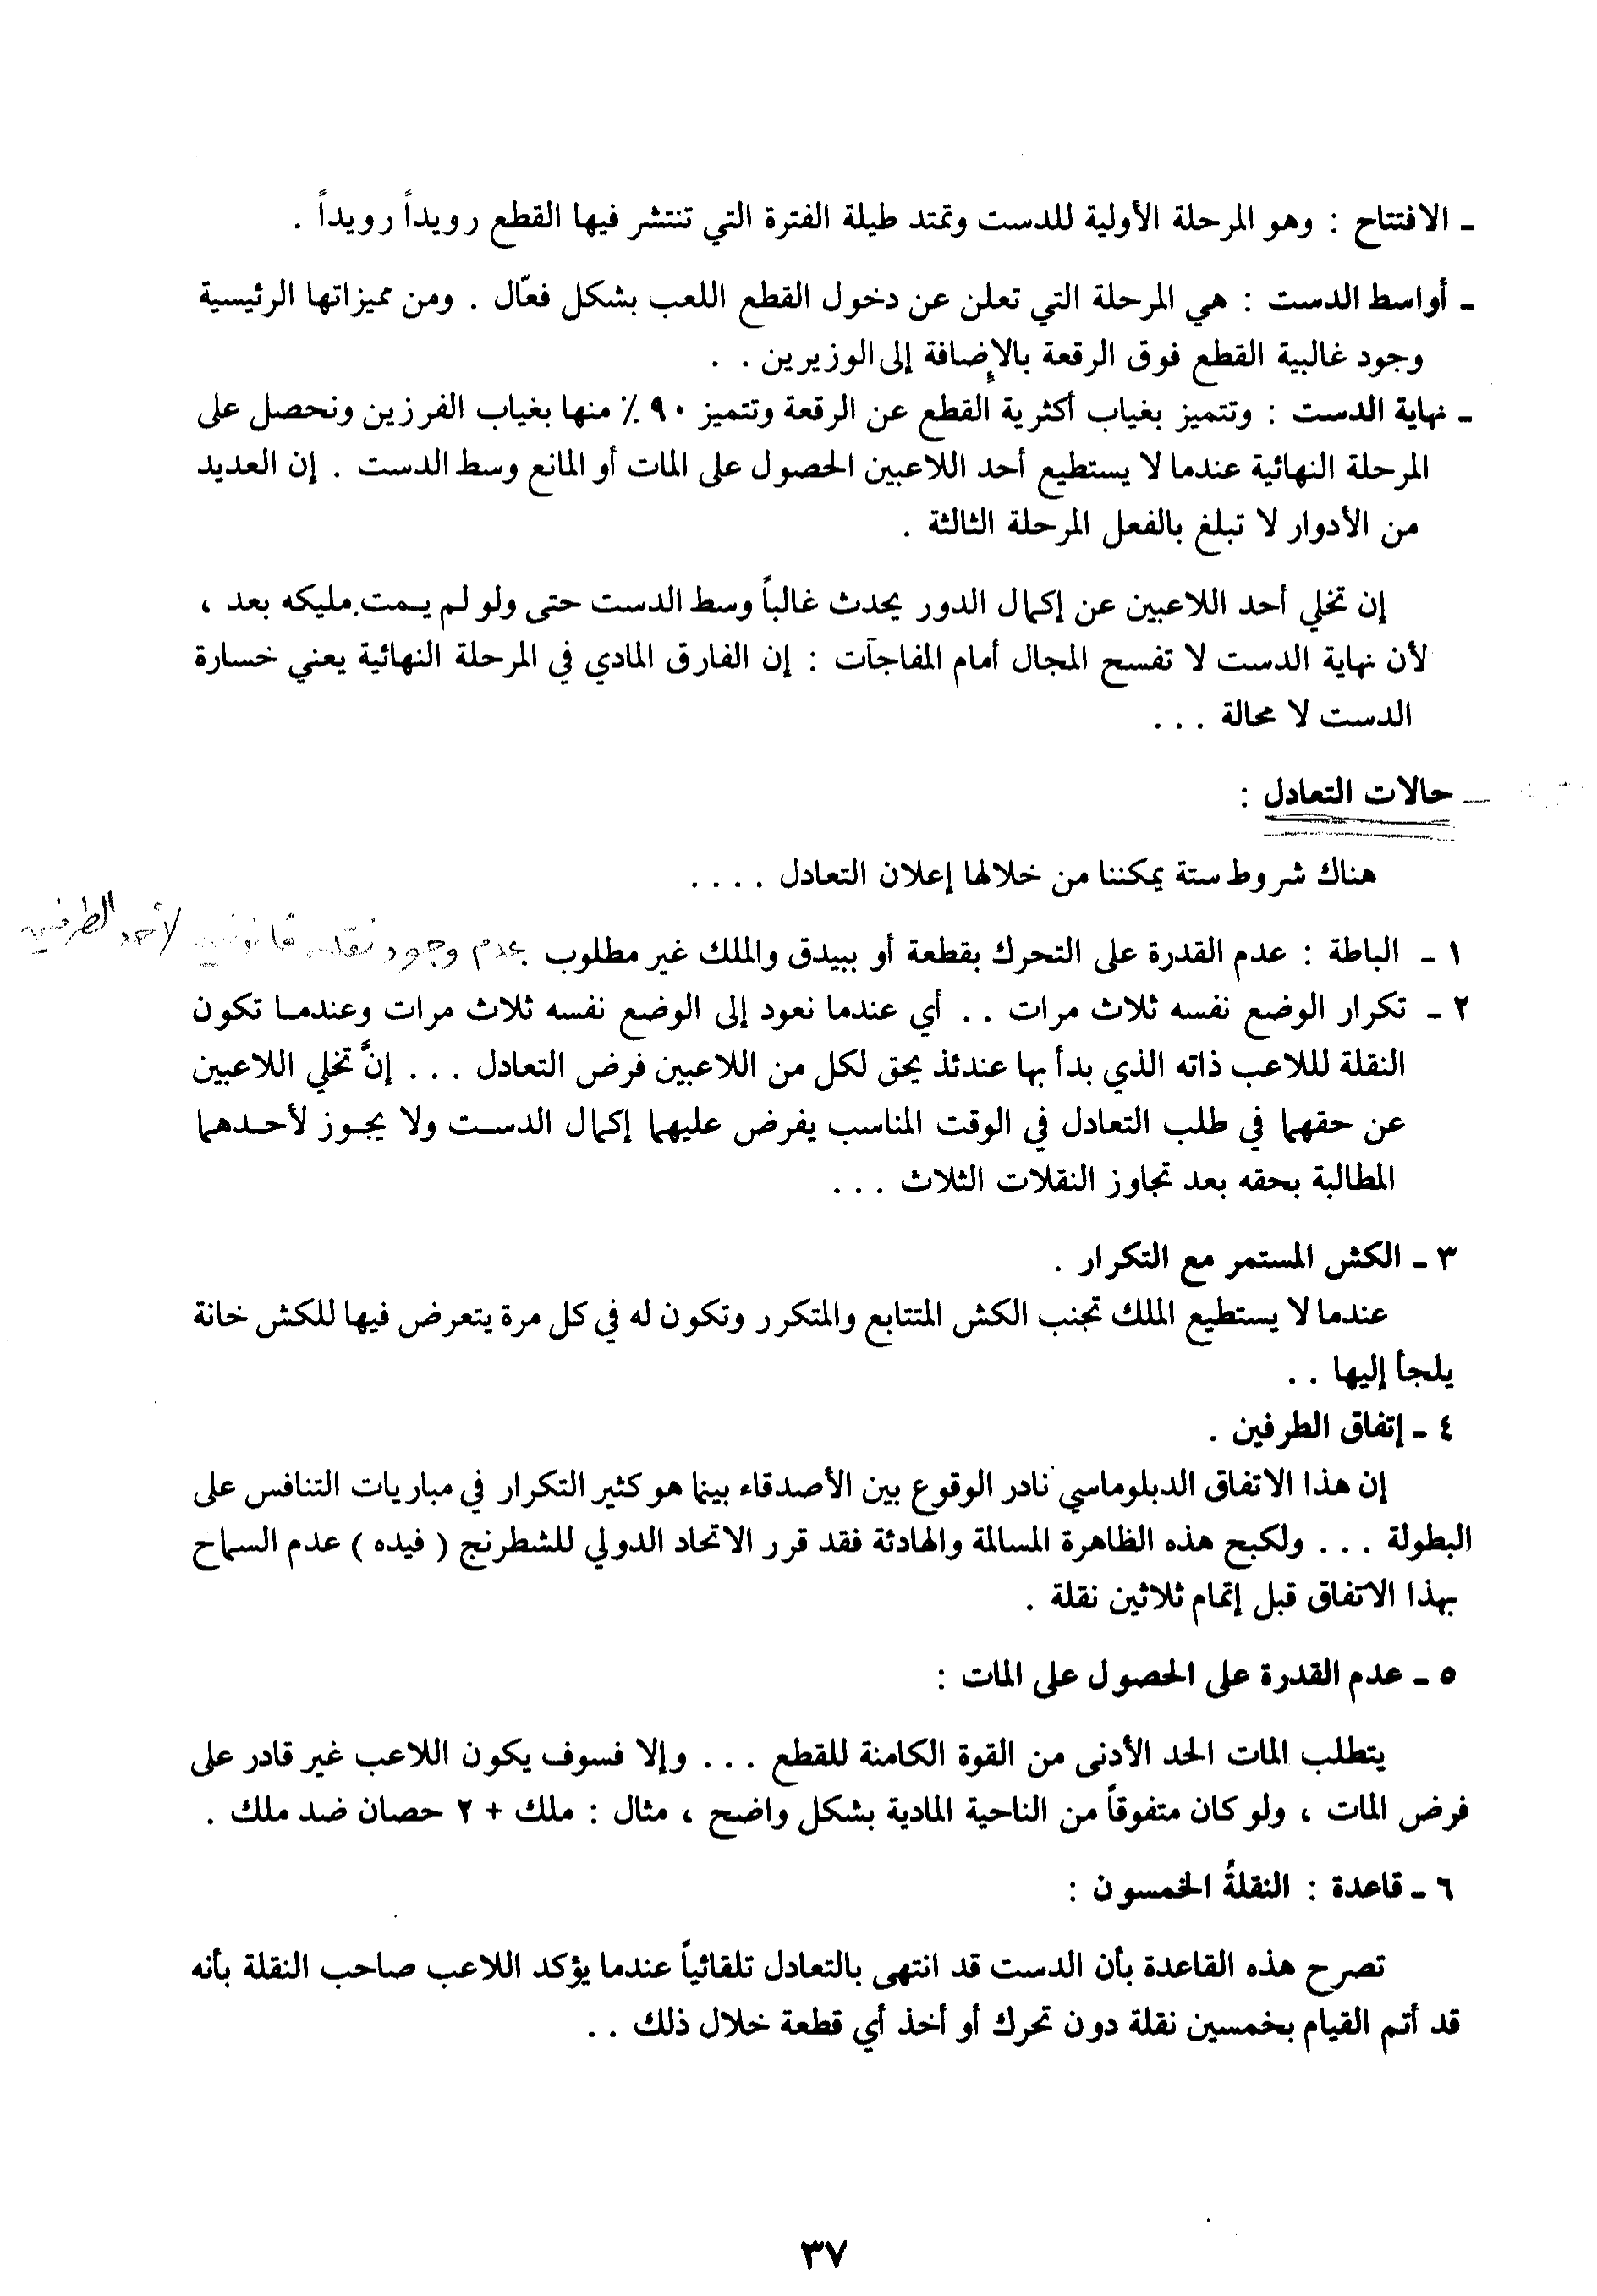 - الافتتاح : وهو المرحلة الأولية للدست وتمتد طيلة الفترة التي تنتشر فيها القطع رويداً رويداً .
- أواسط الدست : هي المرحلة التي تعلن عن دخول القطع اللعب بشكل فعّال . ومن مميزاتها الرئيسية
وجود غالبية القطع فوق الرقعة بالإضافة إلى الوزيرين . .
- نهاية الدست : وتتميز بغياب أكثرية القطع عن الرقعة وتتميز ٩٠ ٪ منها بغياب الفرزين ونحصل على
المرحلة النهائية عندما لا يستطيع أحد اللاعبين الحصول على المات أو المانع وسط الدست . إن العديد
من الأدوار لا تبلغ بالفعل المرحلة الثالثة .
إن تخلي أحد اللاعبين عن إكمال الدور يحدث غالباً وسط الدست حتى ولو لم يمت مليكه بعد ،
لأن نهاية الدست لا تفسح المجال أمام المفاجآت : إن الفارق المادي في المرحلة النهائية يعني خسارة
الدست لا محالة . . .
حالات التعادل :
هناك شروط ستة يمكننا من خلالها إعلان التعادل . . . .
١ - الباطة : عدم القدرة على التحرك بقطعة أو ببيدق والملك غير مطلوب . عدم وجود نقلة قانونية لأحد الطرفين
٢ - تكرار الوضع نفسه ثلاث مرات . . أي عندما نعود إلى الوضع نفسه ثلاث مرات وعندما تكون
النقلة لللاعب ذاته الذي بدأ بها عندئذ يحق لكل من اللاعبين فرض التعادل . . . إنَّ تخلي اللاعبين
عن حقهما في طلب التعادل في الوقت المناسب يفرض عليهما إكمال الدست ولا يجوز لأحدهما
المطالبة بحقه بعد تجاوز النقلات الثلاث . . .
٣ - الكش المستمر مع التكرار .
عندما لا يستطيع الملك تجنب الكش المتتابع والمتكرر وتكون له في كل مرة يتعرض فيها للكش خانة
يلجأ إليها . .
٤ - إتفاق الطرفين .
إن هذا الاتفاق الدبلوماسي نادر الوقوع بين الأصدقاء بينما هو كثير التكرار في مباريات التنافس على
البطولة . . . ولكبح هذه الظاهرة المسالمة والهادئة فقد قرر الاتحاد الدولي للشطرنج ( فيده ) عدم السماح
بهذا الاتفاق قبل إتمام ثلاثين نقلة .
٥ - عدم القدرة على الحصول على المات :
يتطلب المات الحد الأدنى من القوة الكامنة للقطع . . . وإلا فسوف يكون اللاعب غير قادر على
فرض المات ، ولو كان متفوقاً من الناحية المادية بشكل واضح ، مثال : ملك + ٢ حصان ضد ملك .
٦ - قاعدة : النقلةُ الخمسون :
تصرح هذه القاعدة بأن الدست قد انتهى بالتعادل تلقائياً عندما يؤكد اللاعب صاحب النقلة بأنه
قد أتم القيام بخمسين نقلة دون تحرك أو أخذ أي قطعة خلال ذلك . .
٣٧